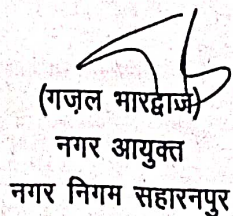 (गज़ल भारद्वाज)
नगर आयुक्त
नगर निगम सहारनपुर